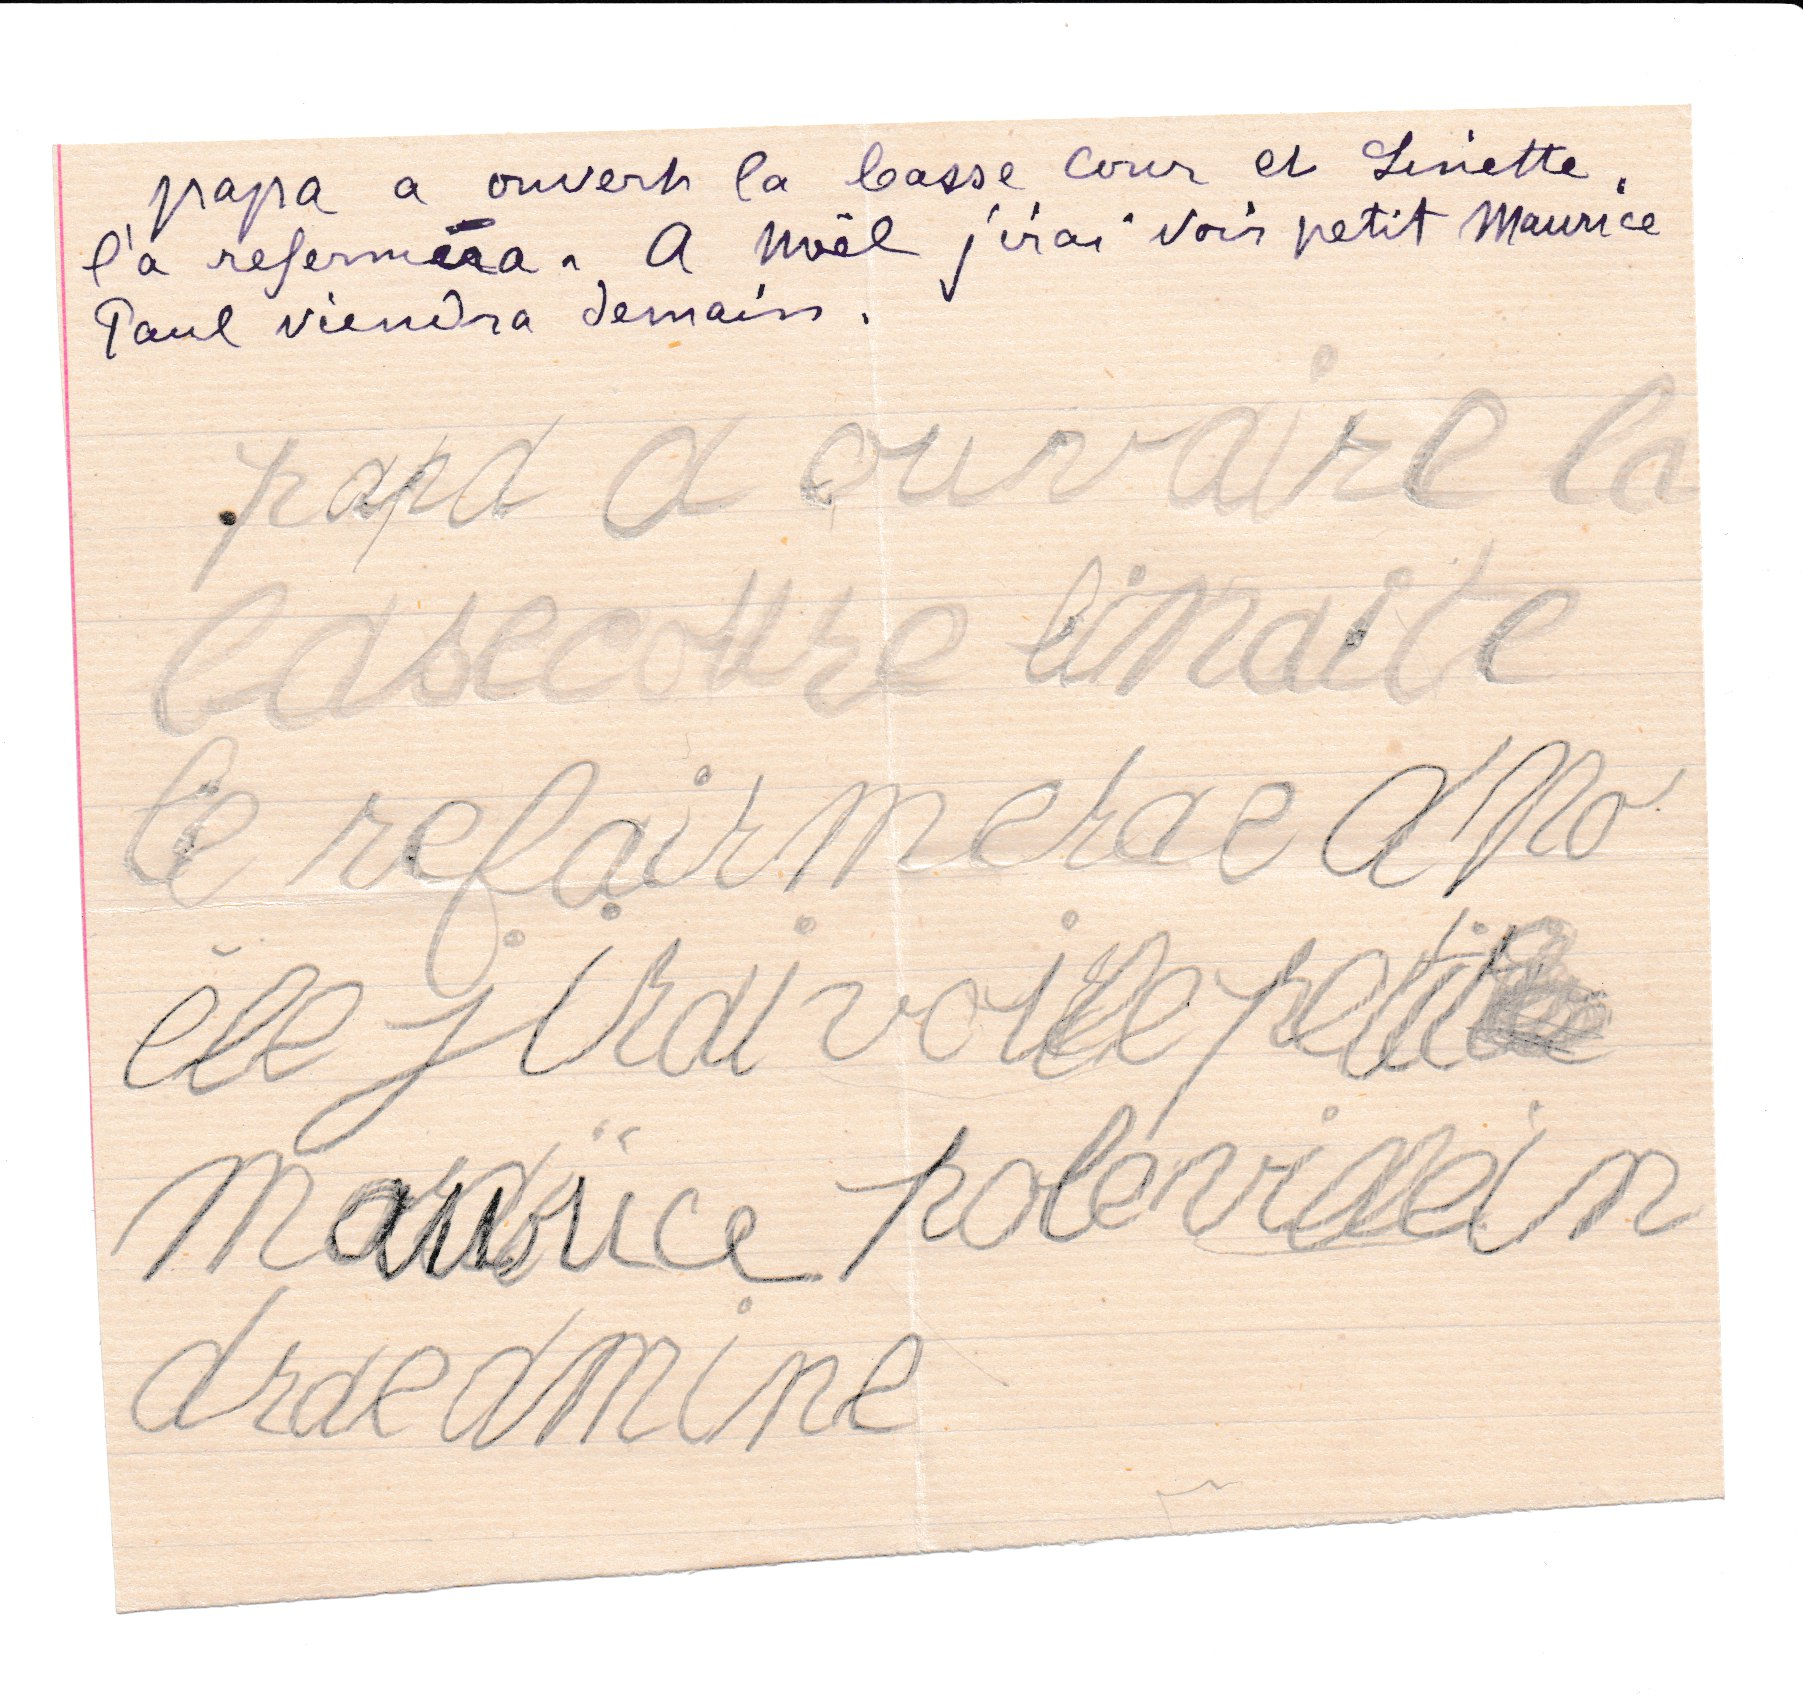 papa a ouvert la basse cour et Linette.
l'a refermera. A Noël j'irai voir petit Maurice
Paul viendra demain.
papa a ouvaire la
basecoure linaite
le refairmerae a No
ële j irai voire petit
Maurice pole viein
drae dmine